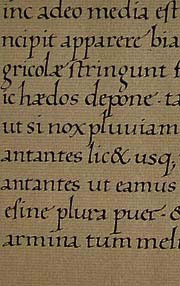 inc adeo media est
ncipit apparere bia
gricolæ stringunt f
ic hædos depone ta
ut si nox pluuiam
antantes lic& usq,
antantes ut eamus
esine plura puer e
armina tum meli